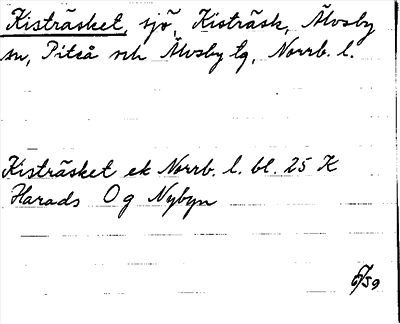 Kisträsket, sjö, Kisträsk, Älvsby
sn, Piteå och Älvsby tg, Norrb. l.
Kisträsket ek Norrb. l. bl. 25 K
Harads O g Nybyn
6/59